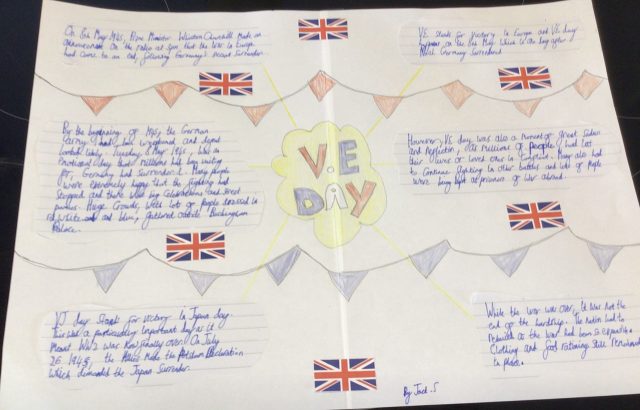 On 8th May 1945, Prime Minister Winston Churchill made an
announcement on the radio at 3pm that the war in Europe
had come to an end, following Germany's Surrender.
V.E stands for Victory in Europe and VE day
happens on the 8th May. Which is the day after
Germany Surrendered
By the beginning of 1945 the German
army had been weakened and defeat
looked likely. Tuesday 8 May 1945, was an
emotional day that millions had been waiting
for, Germany had Surrendered. Many people
were extremely happy that the fighting had
stopped and there were big celebrations and street
parties. Huge Crowds, with lots of people dressed in
red, white and blue, gathered outside Buckingham
Palace.
However, VE day was also a moment of great Sadness
and Reflection, as millions of people had lost
their lives or loved ones in Many also had
to continue fighting in other battles and lots of People
were being kept as prisoners of War abroad.
V.E
DAY
VJ day Stands for victory in Japan day.
This was a particularly important day as it
Meant WW2 was Finally over. On July
26 1945, the Allies Made the Potsdam Declaration
Which demanded the Japan Surrender.
While the War was over, it Was Not the
end of the hardship. The Nation had to
Rebuild as the War had been so Expensive
Clothing and food Rationing Still Remained
in place.
By Jack .S